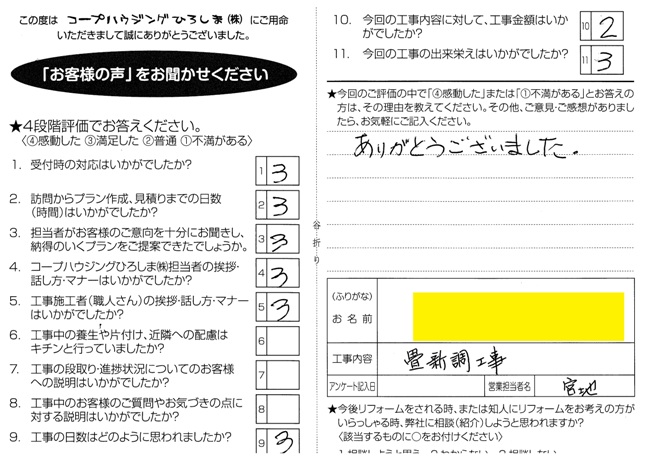 この度は コープハウジングひろしま(株) にご用命
いただきまして誠にありがとうございました。
「お客様の声」をお聞かせください
★4段階評価でお答えください。
〈④感動した ③満足した ②普通 ①不満がある〉
1. 受付時の対応はいかがでしたか? 1 3
2. 訪問からプラン作成、見積りまでの日数
(時間)はいかがでしたか? 2 3
3. 担当者がお客様のご意向を十分にお聞きし、
納得のいくプランをご提案できたでしょうか。 3 3
4. コープハウジングひろしま㈱担当者の挨拶・
話し方・マナーはいかがでしたか? 4 3
5. 工事施工者(職人さん)の挨拶・話し方・マナー
はいかがでしたか? 5 3
6. 工事中の養生や片付け、近隣への配慮は
キチンと行っていましたか? 6
7. 工事の段取り・進捗状況についてのお客様
への説明はいかがでしたか? 7
8. 工事中のお客様のご質問やお気づきの点に
対する説明はいかがでしたか? 8
9. 工事の日数はどのように思われましたか? 9 3
谷折り
10. 今回の工事内容に対して、工事金額はいか
がでしたか? 10 2
11. 今回の工事の出来栄えはいかがでしたか? 11 3
★今回のご評価の中で「④感動した」または「①不満がある」とお答えの
方は、その理由を教えてください。その他、ご意見・ご感想がありまし
たら、お気軽にご記入ください。
ありがとうございました。
(ふりがな)
お名前
工事内容 畳新調工事
アンケート記入日 営業担当者名 宮地
★今後リフォームをされる時、または知人にリフォームをお考えの方が
いらっしゃる時、弊社に相談(紹介)しようと思われますか?
〈該当するものに○をお付けください〉